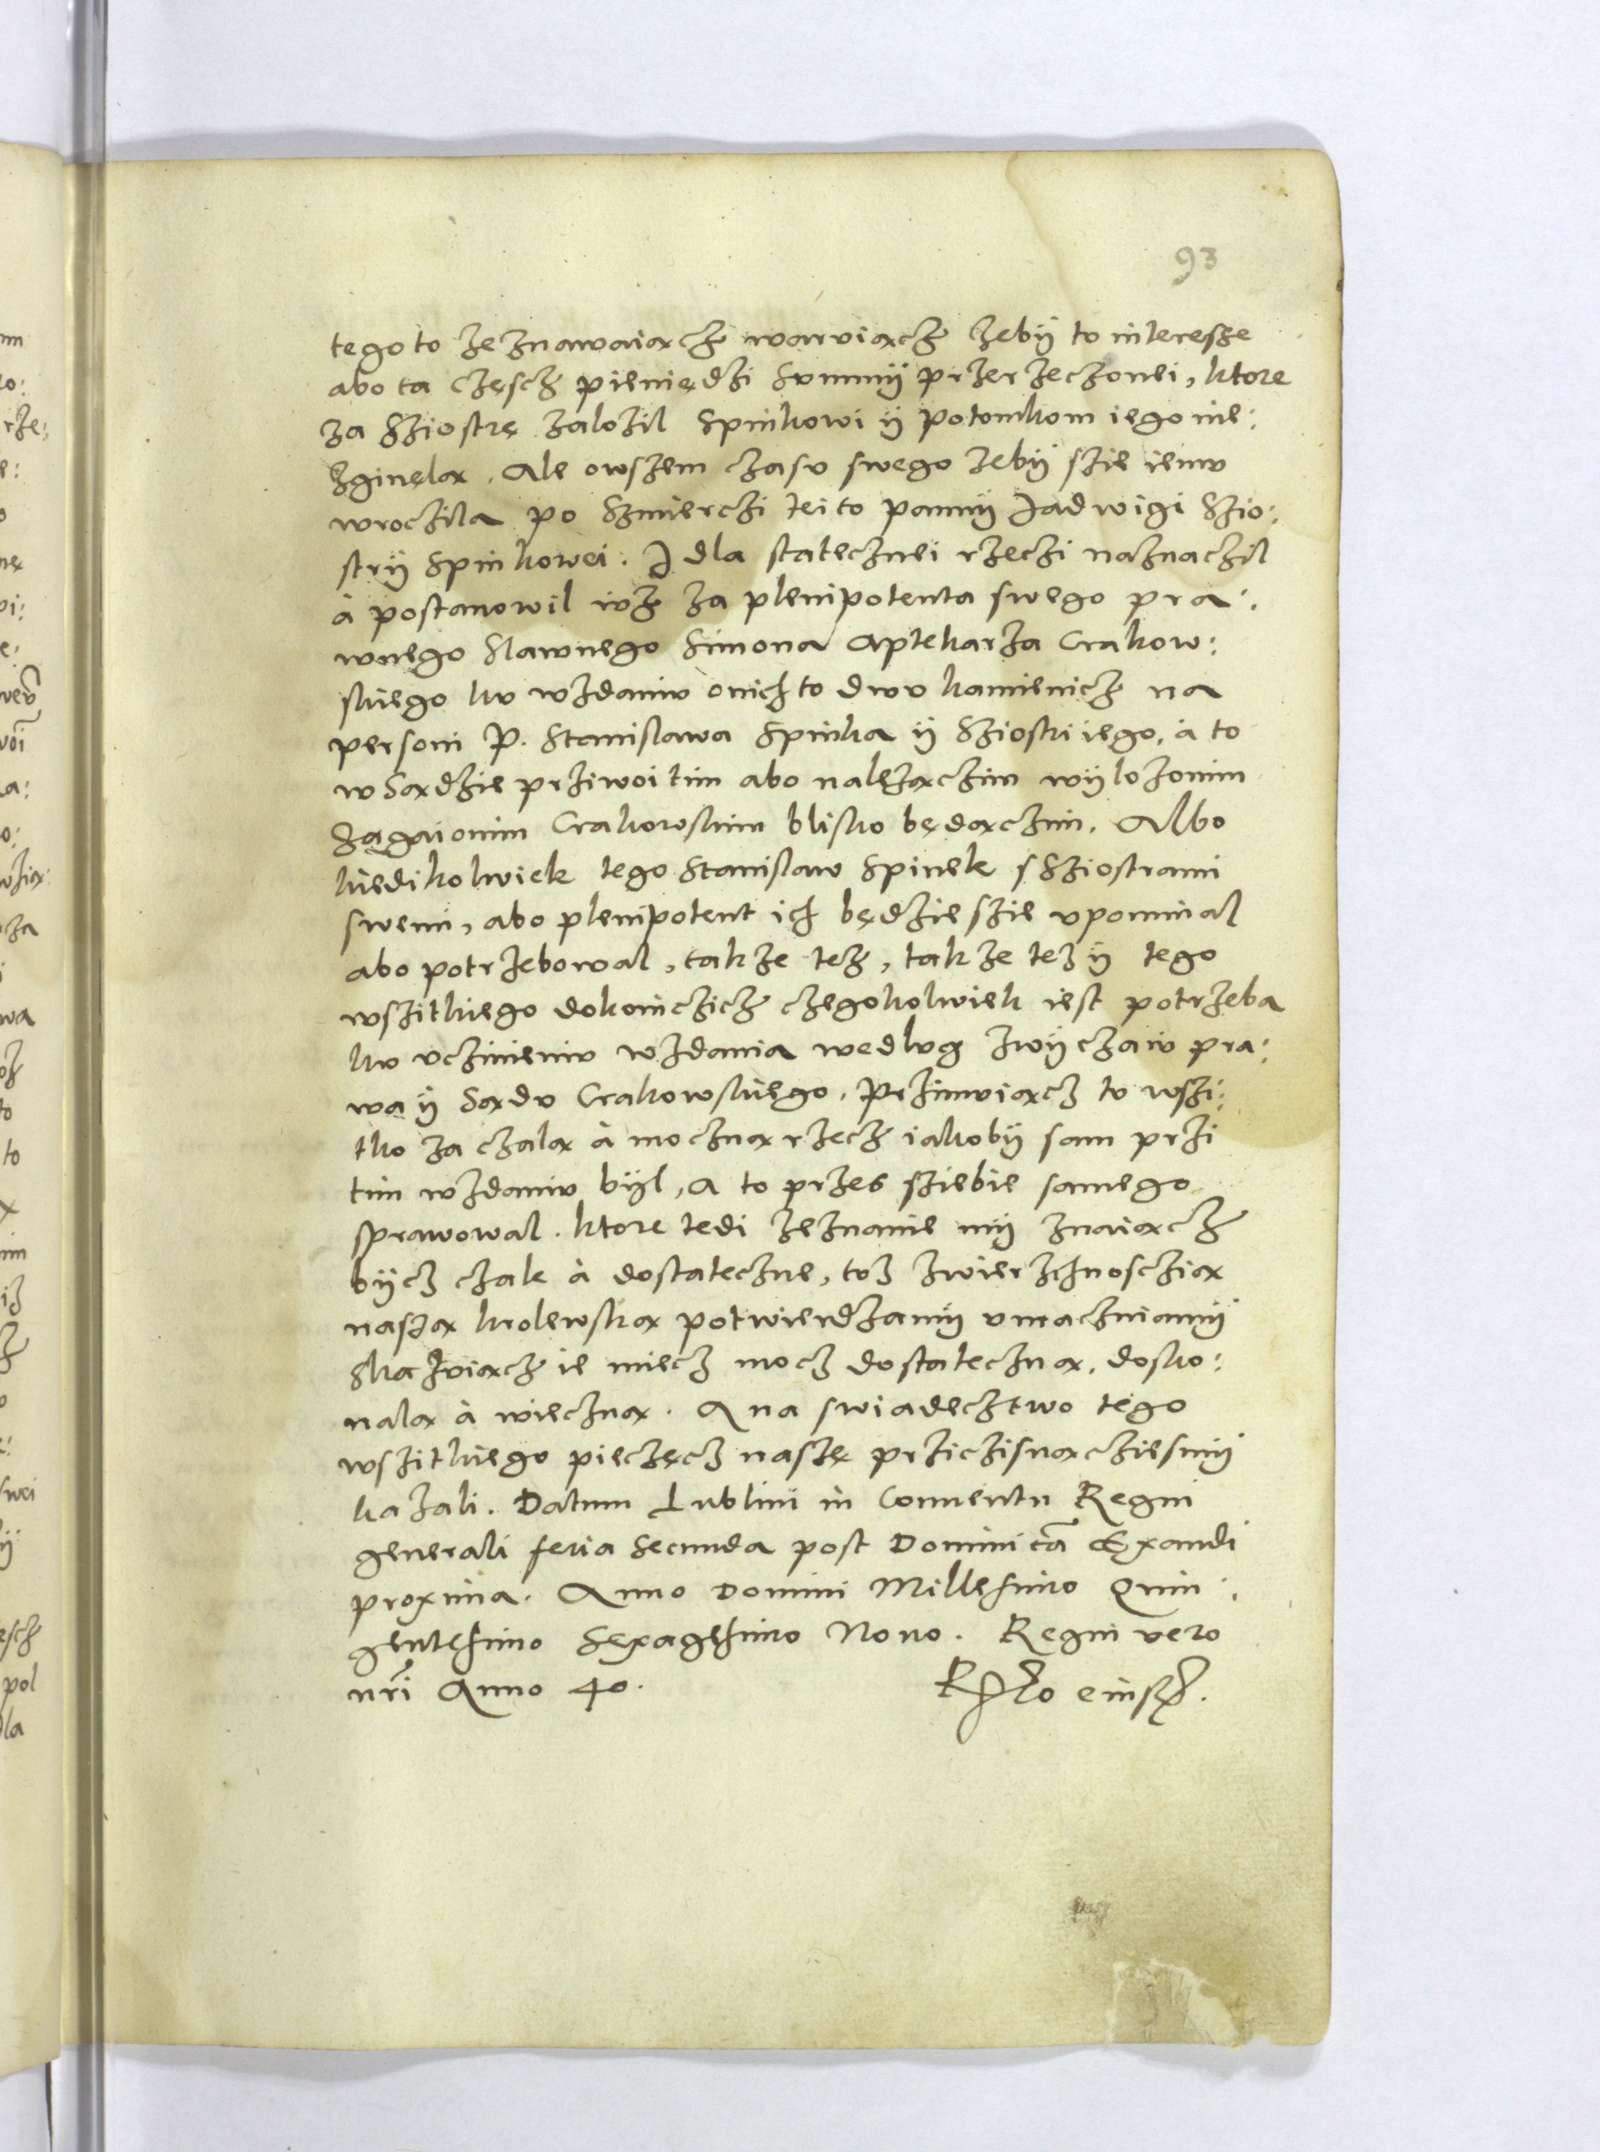 93
tegoto zeznawaiacz warviacz zebÿ to interesze
abo ta częscz pieniędzi Summÿ przerzeczonei, ktore
za Sziostrę zalozil Spinkowi ÿ potomkom iego nie:
zginęla. Ale owszem czasu swego zebÿ szie iemv
wroczila po Szmierczi tei to pannÿ Jadwigi Szio:
strÿ Spinkowei. I dla statecznei rzeczi naznaczil
à postanowil ivz za plenipotenta swego pra:
wnego Slawnego Simona Aptekarza Crakow:
skiego kv wzdaniv onichto dwv kamienicz na
persom P. Stanislawa Spinka ÿ Sziostri iego, à to
w Sadzie prziwoitim abo nalezaczim wÿlozonim
zagaionim Crakowskim blisko będaczim. Albo
kiedikolwiek tego Stanislaw Spinek s Sziostrami
swemi, abo plenipotent ich będzie szie vpominal
abo potrzebowal, takze tez, takze tez ÿ tego
wszitkiego dokonczicz czegokolwiek iest potrzeba
kv vczinieniv wzdania wedlvg zwÿczaiv pra:
wa ÿ Sadv Crakowskiego. Przimviacz to wszi:
tko za czala à moczna rzecz iakobÿ sam przi
tim wzdaniv bÿl, a to przes sziebie samego
sprawowal. Ktore tedi zeznanie mÿ znaiacz
bÿcz czale à dostateczne, toz zwierzchnosczia
nasza krolewska potwierdzamÿ vmaczniamÿ
Skazviacz ie miecz mocz dostateczna, dosko:
nala à wieczna. A na swiadecztwo tego
wszitkiego pieczęcz naszę prziczisnacziesmÿ
kazali. Datum Lublini in Conuentu Regni
generali feria Secunda post Dominicā Exaudi
proxima. Anno Domini Millesimo Quin:
gentesimo Sexagesimo Nono. Regni uero
nr̃i Anno 40.